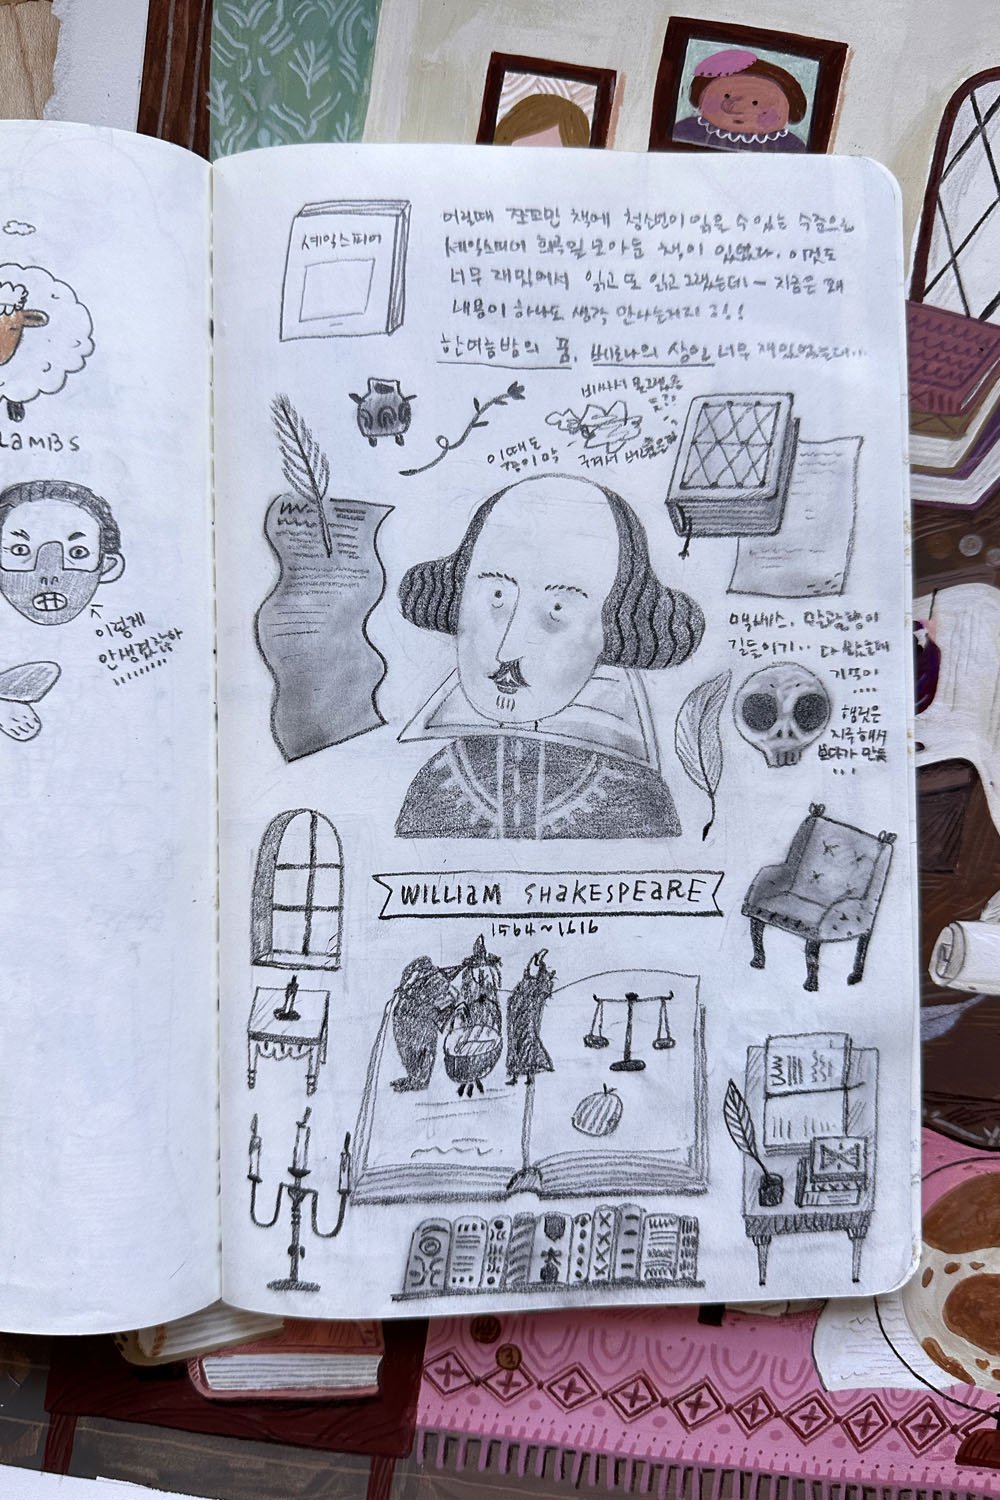 LAMBS
이렇게
안생겼잖아
셰익스피어
어릴때 조그만 책에 청소년이 읽을 수 있는 수준으로
셰익스피어 희곡을 모아둔 책이 있었다. 이것도
너무 재밌어서 읽고 또 읽고 그랬는데!~ 지금은 왜
내용이 하나도 생각 안나는거지
한여름밤의 꿈, 베로나의 상인 너무 재밌었는데...
비싸서
이때도
종이막
구겨서
맥베스, 말괄량이
길들이기.. 다 봤는데
기억이
....
햄릿은
지루해서
보다가 만듯
...
WILLIAM SHAKESPEARE
1564~1616